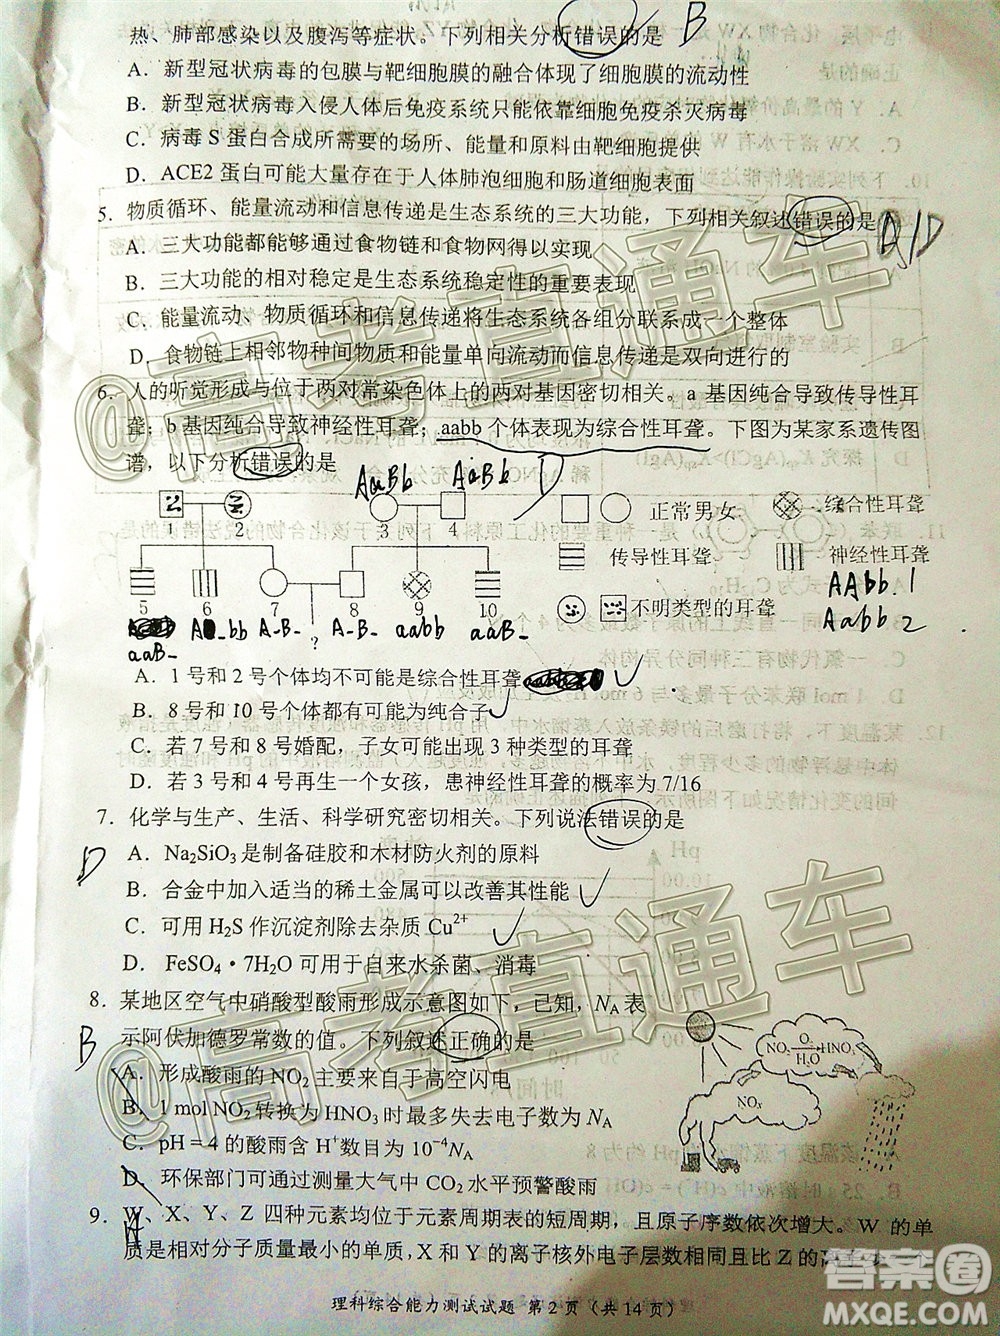 热、肺部感染以及腹泻等症状。下列相关分析错误的是 B
A．新型冠状病毒的包膜与靶细胞膜的融合体现了细胞膜的流动性
B．新型冠状病毒入侵人体后免疫系统只能依靠细胞免疫杀灭病毒
C．病毒 S 蛋白合成所需要的场所、能量和原料由靶细胞提供
D．ACE2 蛋白可能大量存在于人体肺泡细胞和肠道细胞表面
5．物质循环、能量流动和信息传递是生态系统的三大功能，下列相关叙述错误的是
A．三大功能都能够通过食物链和食物网得以实现
B．三大功能的相对稳定是生态系统稳定性的重要表现
C．能量流动、物质循环和信息传递将生态系统各组分联系成一个整体
D．食物链上相邻物种间物质和能量单向流动而信息传递是双向进行的
6．人的听觉形成与位于两对常染色体上的两对基因密切相关。a 基因纯合导致传导性耳
聋；b 基因纯合导致神经性耳聋；aabb 个体表现为综合性耳聋。下图为某家系遗传图
谱，以下分析错误的是
AaBb AaBb D
1 2 3 4 正常男女 综合性耳聋
传导性耳聋 神经性耳聋
5 6 7 8 9 10 不明类型的耳聋
AAbb 1
Aabb 2
A-bb A-B- ? A-B- aabb aaB-
aaB-
A．1 号和 2 号个体均不可能是综合性耳聋
B．8 号和 10 号个体都有可能为纯合子
C．若 7 号和 8 号婚配，子女可能出现 3 种类型的耳聋
D．若 3 号和 4 号再生一个女孩，患神经性耳聋的概率为 7/16
7．化学与生产、生活、科学研究密切相关。下列说法错误的是
D
A．Na₂SiO₃ 是制备硅胶和木材防火剂的原料
B．合金中加入适当的稀土金属可以改善其性能
C．可用 H₂S 作沉淀剂除去杂质 Cu²⁺
D．FeSO₄・7H₂O 可用于自来水杀菌、消毒
8．某地区空气中硝酸型酸雨形成示意图如下，已知，Nᴀ 表
示阿伏加德罗常数的值。下列叙述正确的是
B
A．形成酸雨的 NO₂ 主要来自于高空闪电
B．1 mol NO₂ 转换为 HNO₃ 时最多失去电子数为 Nᴀ
C．pH = 4 的酸雨含 H⁺ 数目为 10⁻⁴Nᴀ
D．环保部门可通过测量大气中 CO₂ 水平预警酸雨
NO₂ O₂ H₂O HNO₃
NOₓ
9．W、X、Y、Z 四种元素均位于元素周期表的短周期，且原子序数依次增大。W 的单
质是相对分子质量最小的单质，X 和 Y 的离子核外电子层数相同且比 Z 的
理科综合能力测试试题 第 2 页（共 14 页）
@高考直通车
@高考直通车
答案圈
MXQE.COM